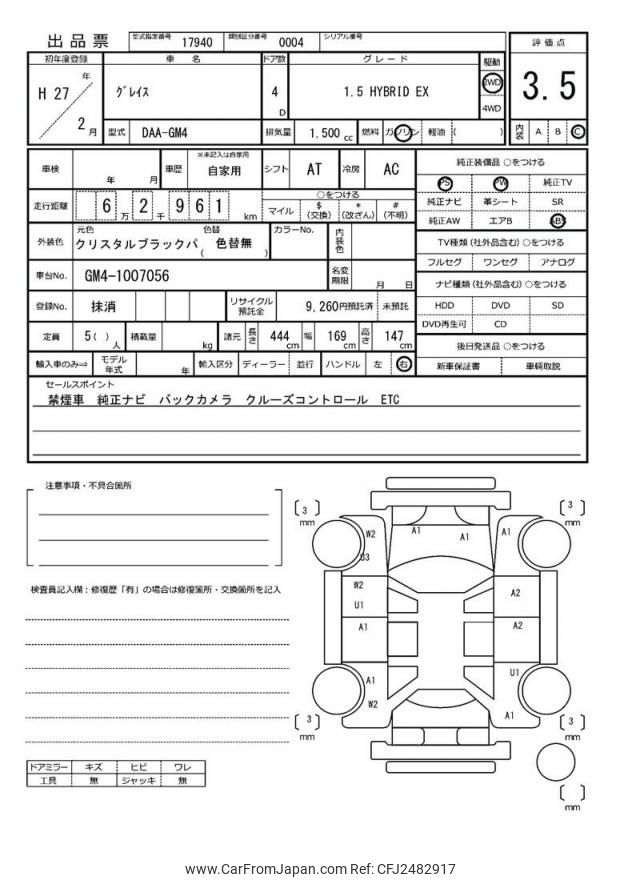 出品票 型式指定番号 17940 類別区分番号 0004 シリアル番号
初年度登録 車 名 ドア数 グレード 駆動 評価点
H 27 年 2 月 グレイス 4 D 1.5 HYBRID EX 2WD 4WD 3.5
型式 DAA-GM4 排気量 1.500 cc 燃料 ガソリン 軽油 ( ) 内装 A B C
車検 年 月 車歴 ※未記入は自家用 自家用 シフト AT 冷房 AC
純正装備品 ○をつける
PS PW 純正TV
走行距離 6 万 2 千 9 6 1 km
○をつける
マイル $ (交換) * (改ざん) # (不明)
純正ナビ 革シート SR
純正AW エアB ABS
外装色 元色 クリスタルブラックパ 色替 ( 色替無 ) カラーNo. 内装色
TV種類 (社外品含む) ○をつける
フルセグ ワンセグ アナログ
車台No. GM4-1007056 名変期限 月 日
ナビ種類 (社外品含む) ○をつける
登録No. 抹消 リサイクル預託金 9,260円預託済 未預託
HDD DVD SD
DVD再生可 CD
定員 5( ) 人 積載量 kg 諸元 長さ 444 cm 幅 169 cm 高さ 147 cm
後日発送品 ○をつける
輸入車のみ⇒ モデル年式 年 輸入区分 ディーラー 並行 ハンドル 左 右
新車保証書 車輌取説
セールスポイント
禁煙車 純正ナビ バックカメラ クルーズコントロール ETC
注意事項・不具合箇所
検査員記入欄：修復歴「有」の場合は修復箇所・交換箇所を記入
3 mm 3 mm
W2 A1 A1 A1
U3
W2 A2
U1
A1 A2
A1 U1
W2 A1
3 mm 3 mm
mm
ドアミラー キズ ヒビ ワレ
工具 無 ジャッキ 無
www.CarFromJapan.com Ref: CFJ2482917